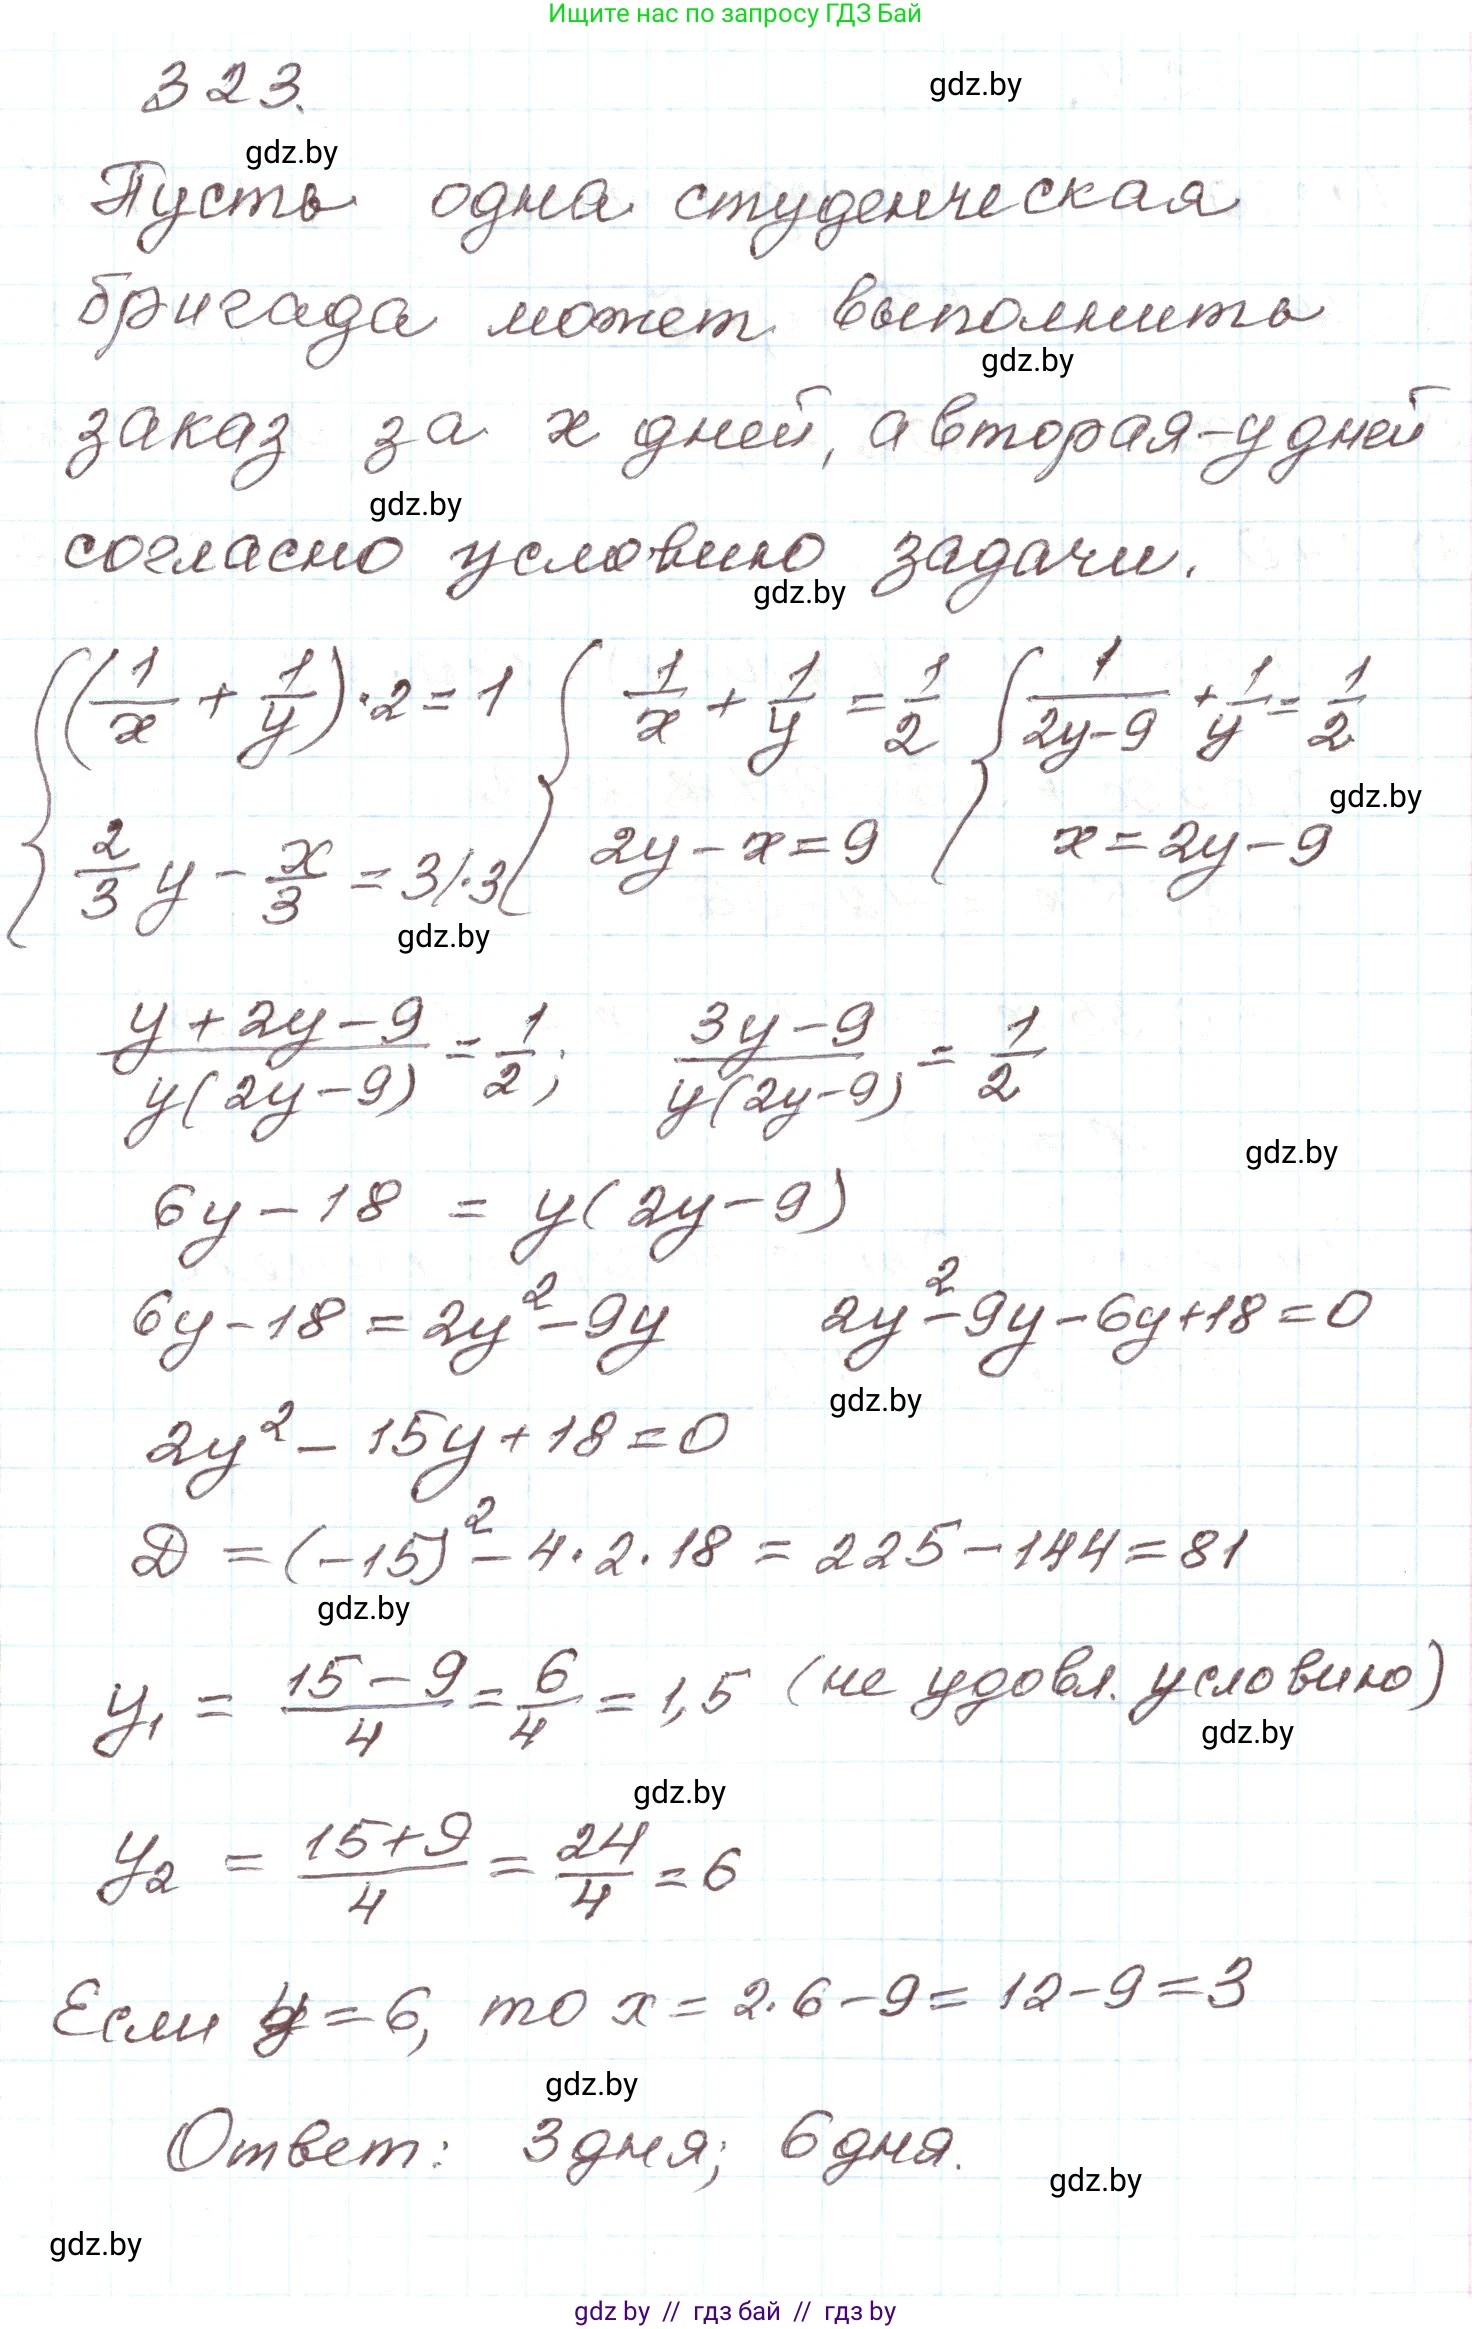 Ищите нас по запросу ГДЗ Бай
323.
gdz.by
gdz.by
Пусть одна студенческая
бригада может выполнить
gdz.by
заказ за x дней, а вторая - y дней
gdz.by
согласно условию задачи.
gdz.by
{ (1/x + 1/y) · 2 = 1 { 1/x + 1/y = 1/2 { 1/(2y-9) + 1/y = 1/2
gdz.by
2/3 y - x/3 = 3 |·3 2y - x = 9 x = 2y - 9
gdz.by
(y + 2y - 9)/(y(2y - 9)) = 1/2; (3y - 9)/(y(2y - 9)) = 1/2
gdz.by
6y - 18 = y(2y - 9)
6y - 18 = 2y² - 9y 2y² - 9y - 6y + 18 = 0
gdz.by
2y² - 15y + 18 = 0
D = (-15)² - 4·2·18 = 225 - 144 = 81
gdz.by
y₁ = (15 - 9)/4 = 6/4 = 1,5 (не удовл. условию)
gdz.by
gdz.by
y₂ = (15 + 9)/4 = 24/4 = 6
Если y = 6, то x = 2·6 - 9 = 12 - 9 = 3
gdz.by
Ответ: 3 дня; 6 дня.
gdz.by
gdz.by
gdz by // гдз бай // гдз by